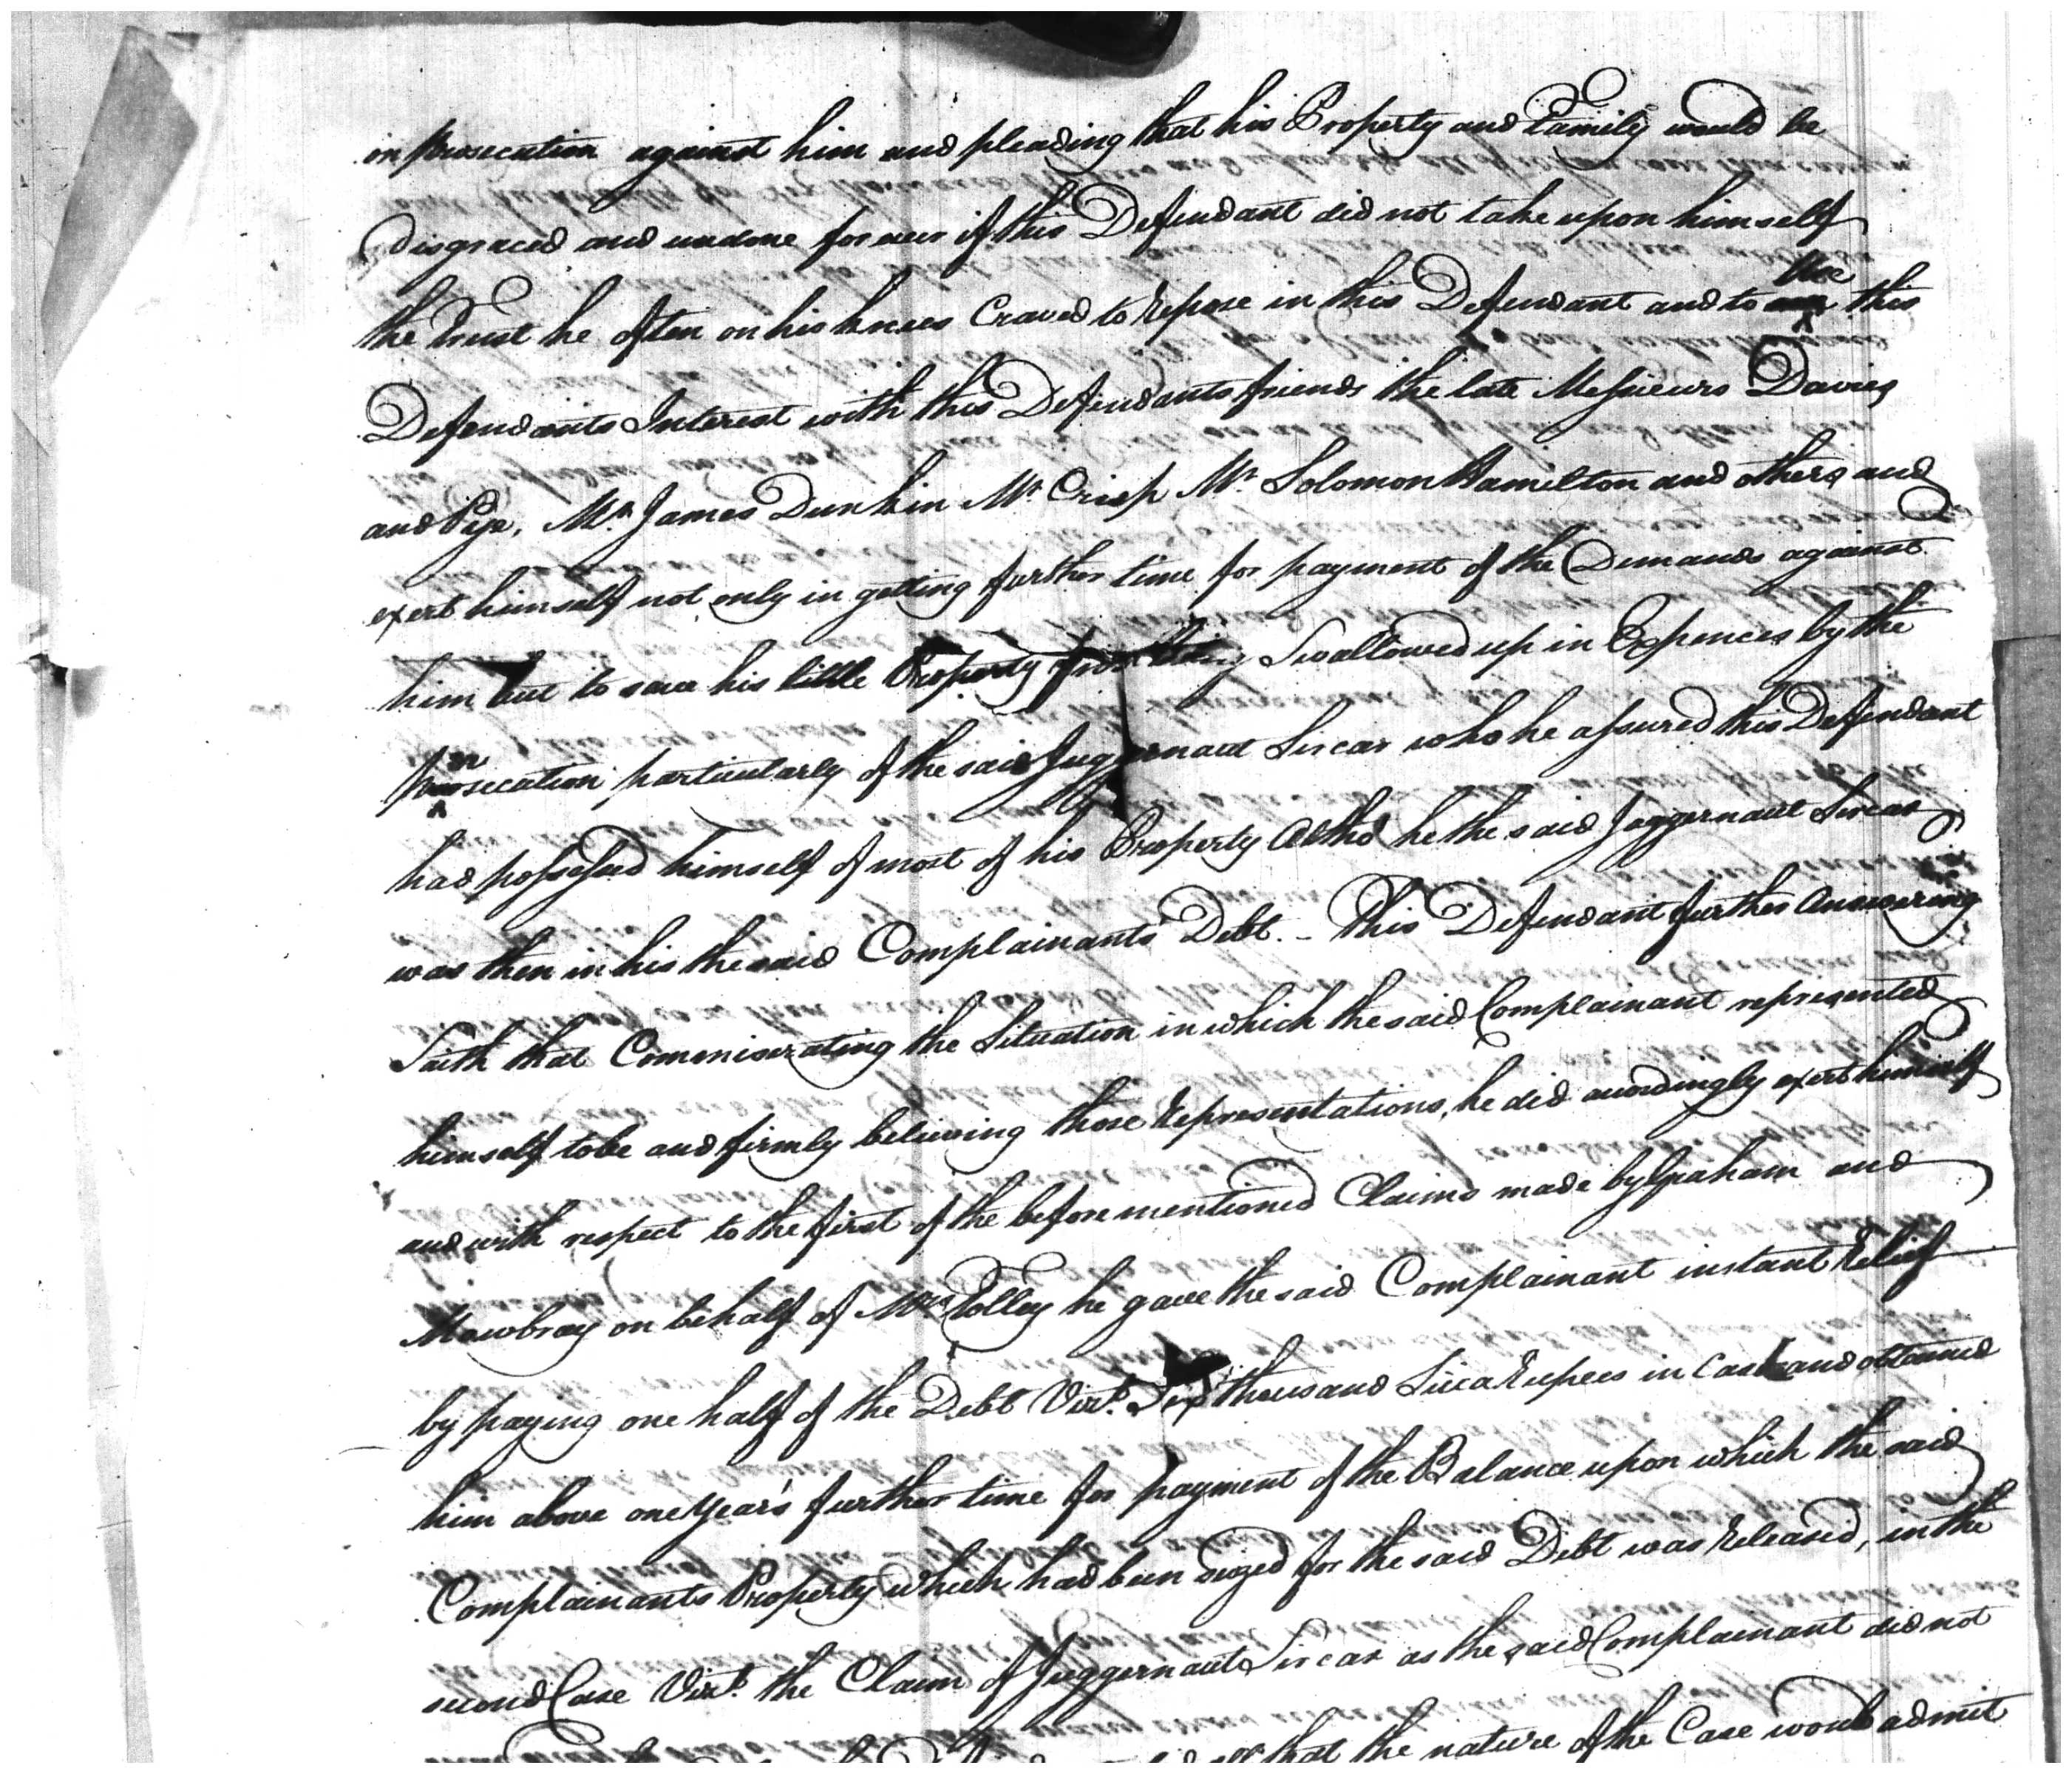 in prosecution against him and pleading that his Property and Family would be
disgraced and undone for ever if this Defendant did not take upon himself
the Trust he often on his knees Craved to Repose in this Defendant and to Use this
Defendants Interest with this Defendants friends the late Messieurs Davies
and Pye, Mr. James Dunkin Mr. Crisp Mr. Solomon Hamilton and others and
exert himself not only in getting further time for payment of the Demands against
him but to save his little Property from being Swallowed up in Expences by the
prosecution particularly of the said Juggernaut Sircar who he assured this Defendant
had possessed himself of most of his Property Altho he the said Juggernaut Sircar
was then in his the said Complainants Debt. - This Defendant further Answering
Saith that Commiserating the Situation in which the said Complainant represented
himself to be and firmly believing those Representations, he did accordingly exert himself
and with respect to the first of the before mentioned Claims made by Graham and
Mowbray on behalf of Mrs. Tolley he gave the said Complainant instant Relief
by paying one half of the Debt Vizt. Six thousand Sicca Rupees in Cash and obtained
him above one Year's further time for payment of the Balance upon which the said
Complainants Property which had been seized for the said Debt was Released, in the
second Case Vizt. the Claim of Juggernaut Sircar as the said Complainant did not
all that the nature of the Case would admit